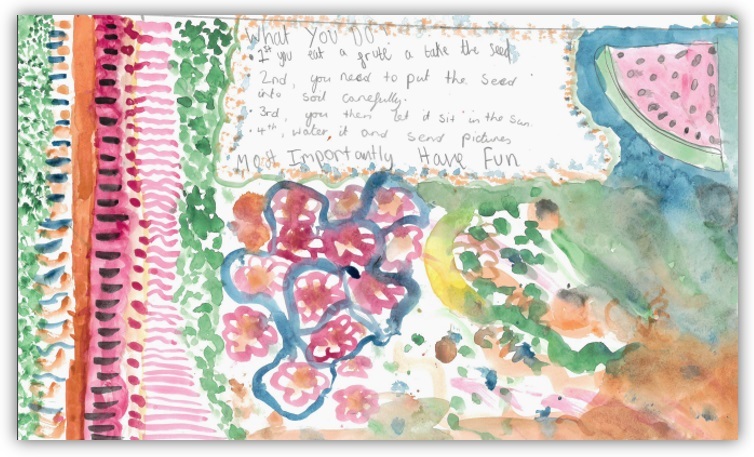 What You DO:
• 1st you eat a fruite a take the seed
• 2nd, you need to put the seed
into soil carefully.
• 3rd, you then let it sit in the sun.
• 4th, water it and send pictures
Most Importantly Have Fun